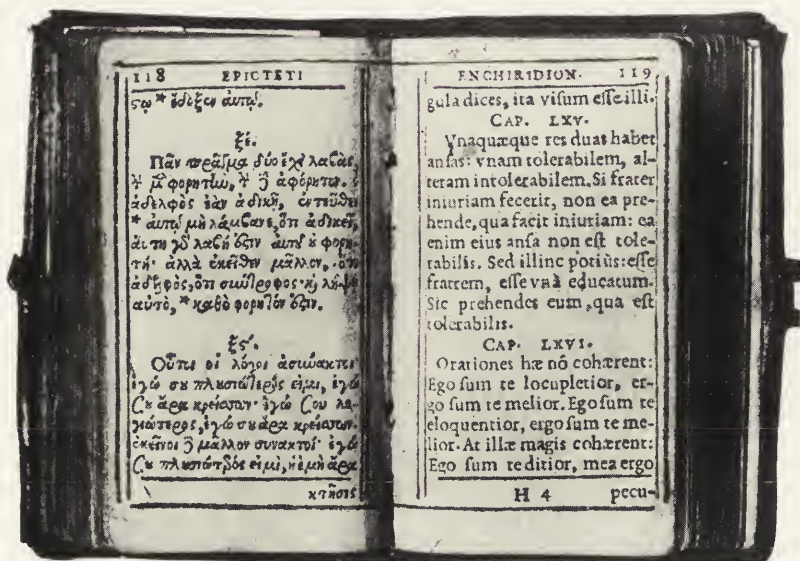 118 EPICTETI
σῳ * ἔδοξεν αὐτῷ.
ξέ.
Πᾶν πρᾶγμα δύο ἔχει λαβὰς,
τ μ φορητὼ, τ ϳ ἀφόρητον.
ἀδελφὸς ἐὰν ἀδικῇ, ἐντεῦθεν
* αὐτῷ μὴ λάμβανε, ὅτι ἀδικεῖ,
αὕτη γὸ λαβή ὅζιν αὐτῷ ὐ φορη-
τή· ἀλλὰ ἐκεῖθεν μᾶλλον, ὅτι
ἀδελφὸς, ὅτι σωύτροφος· κ λήψῃ
αὐτὸ, * καθὸ φορητόν ὅζιν.
ξς΄.
Οὗτοι οἱ λόγοι ἀσύνακτοι·
ἐγώ σου πλουσιώτερός εἰμι, ἐγώ
σου ἄρα κρείσσων· ἐγώ σου λο-
γιώτερος, ἐγώ σου ἄρα κρείσσων.
ἐκεῖνοι ϳ μᾶλλον συνακτοί· ἐγώ
σου πλουσιώτερός εἰμι, ἡ ἐμὴ ἄρα
κτῆσις
ENCHIRIDION. 119
gula dices, ita visum esse illi.
CAP. LXV.
Vnaquæque res duas habet
ansas: vnam tolerabilem, al-
teram intolerabilem. Si frater
iniuriam fecerit, non ea pre-
hende, qua facit iniuriam: ea
enim eius ansa non est tole-
rabilis. Sed illinc potiùs: esse
fratrem, esse vnà educatum.
Sic prehendes eum, qua est
tolerabilis.
CAP. LXVI.
Orationes hæ nō cohærent:
Ego sum te locupletior, er-
go sum te melior. Ego sum te
eloquentior, ergo sum te me-
lior. At illæ magis cohærent:
Ego sum te ditior, mea ergo
H 4 pecu-